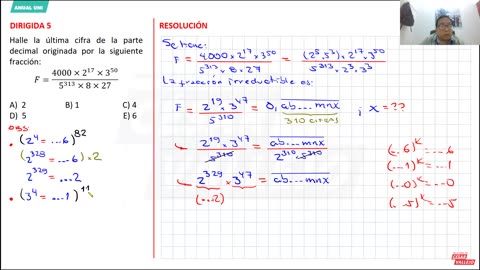 ANUAL UNI
DIRIGIDA 5
Halle la última cifra de la parte
decimal originada por la siguiente
fracción:
F = \frac{4000 × 2^{17} × 3^{50}}{5^{313} × 8 × 27}
A) 2 B) 1 C) 4
D) 5 E) 6
OBS:
• (2^4 = ...6)^{82}
(2^{328} = ...6) × 2
2^{329} = ...2
• (3^4 = ...1)^{11}
RESOLUCIÓN
Se tiene:
F = \frac{4000 × 2^{17} × 3^{50}}{5^{313} × 8 × 27} = \frac{(2^5.5^3).2^{17}.3^{50}}{5^{313}.2^3.3^3}
La fracción irreductible es:
F = \frac{2^{19} × 3^{47}}{5^{310}} = 0,ab...mnx ¡ x = ??
310 cifras
\frac{2^{19} × 3^{47}}{5^{310}} = \frac{ab...mnx}{2^{310}.5^{310}}
2^{329} × 3^{47} = ab...mnx
(...2)
(...6)^K = ...6
(...1)^K = ...1
(...0)^K = ...0
(...5)^K = ...5
CÉSAR
VALLEJO